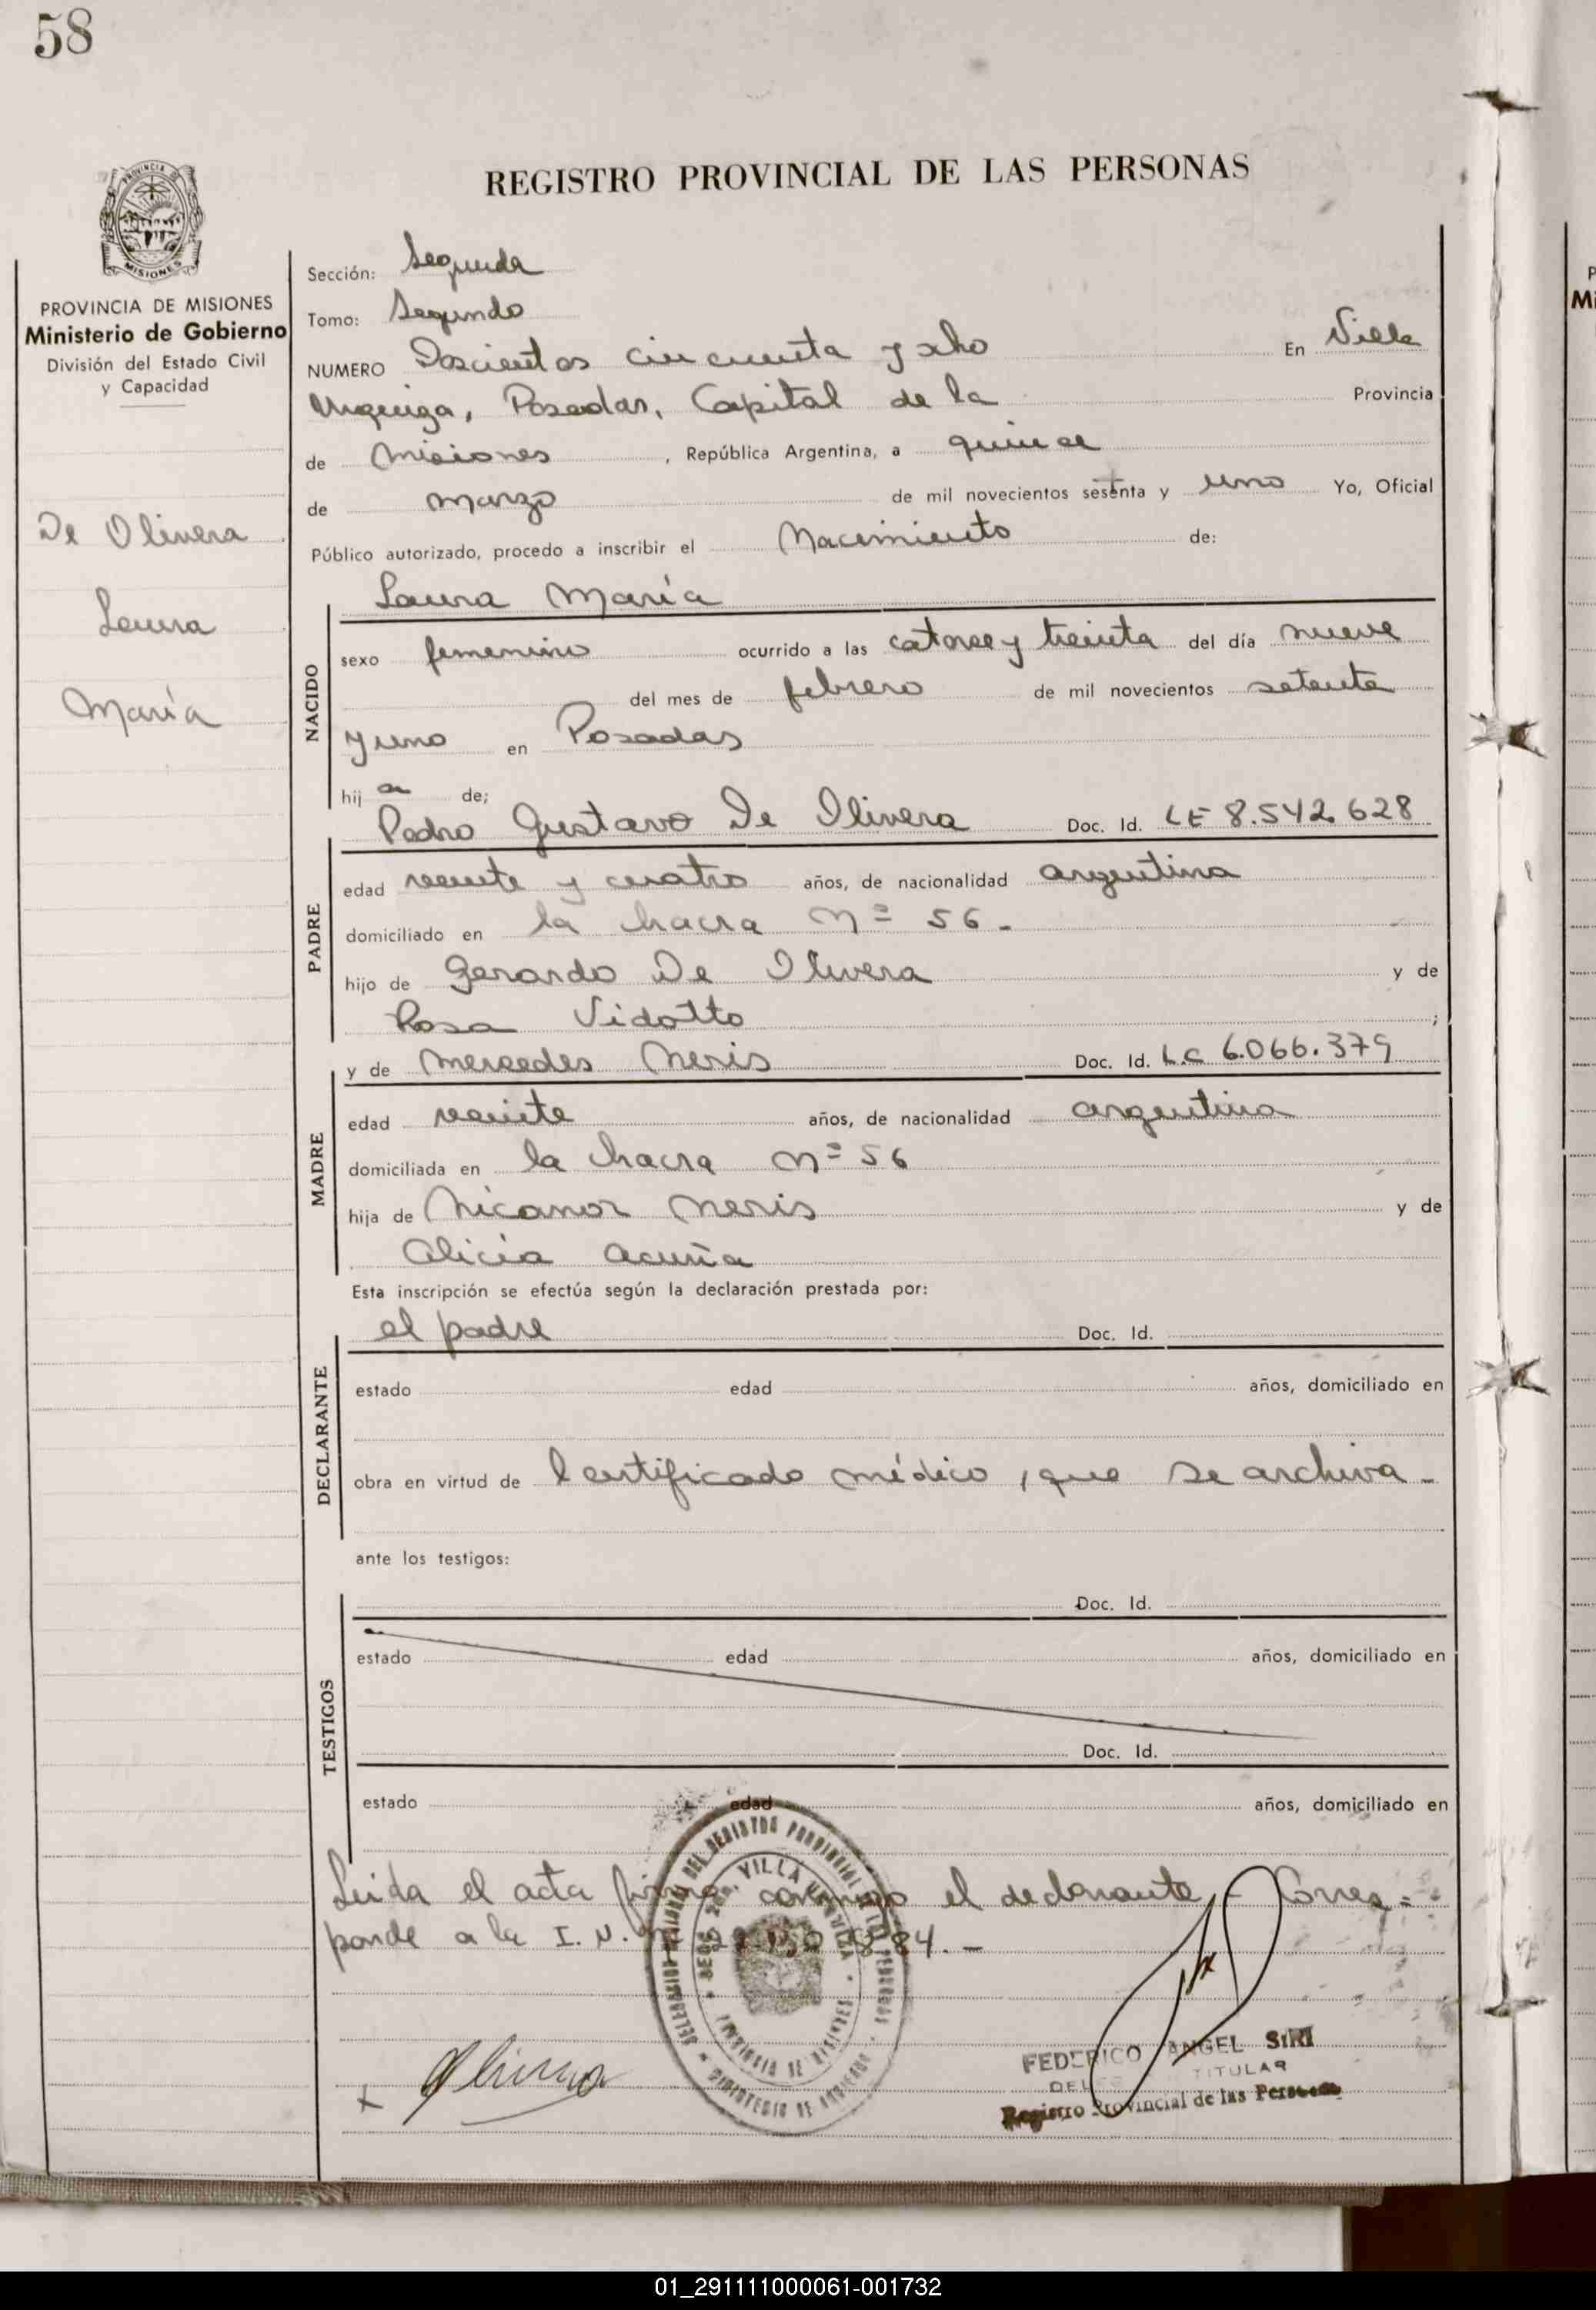 58
REGISTRO PROVINCIAL DE LAS PERSONAS
PROVINCIA DE MISIONES
Ministerio de Gobierno
División del Estado Civil
y Capacidad
De Olivera
Laura
María
Sección: Segunda
Tomo: Segundo
NUMERO Doscientos cincuenta y ocho En Villa
Urquiza, Posadas, Capital de la Provincia
de Misiones, República Argentina, a quince
de marzo de mil novecientos sesenta y uno Yo, Oficial
Público autorizado, procedo a inscribir el Nacimiento de:
Laura María
NACIDO
sexo femenino ocurrido a las catorce y treinta del día nueve
del mes de febrero de mil novecientos setenta
y uno en Posadas
hij a de;
Pedro Gustavo De Olivera Doc. Id. LE 8.542.628
PADRE
edad veinte y cuatro años, de nacionalidad argentina
domiciliado en la chacra Nº 56.-
hijo de Gerardo De Olivera y de
Rosa Vidotto ;
y de Mercedes Neris Doc. Id. L.C 6.066.379
MADRE
edad veinte años, de nacionalidad argentina
domiciliada en la chacra Nº 56
hija de Nicanor Neris y de
Alicia Acuña
Esta inscripción se efectúa según la declaración prestada por:
el padre Doc. Id.
DECLARANTE
estado edad años, domiciliado en
obra en virtud de Certificado médico, que se archiva.-
ante los testigos:
Doc. Id.
TESTIGOS
estado edad años, domiciliado en
Doc. Id.
estado edad años, domiciliado en
Leída el acta firma conmigo el declarante.- Corres=
ponde a la I. N. 84.-
VILLA URQUIZA
PROVINCIA DE MISIONES
MINISTERIO DE GOBIERNO
x Olivera
FEDERICO ANGEL SIRI
TITULAR
Registro Provincial de las Personas
01_291111000061-001732